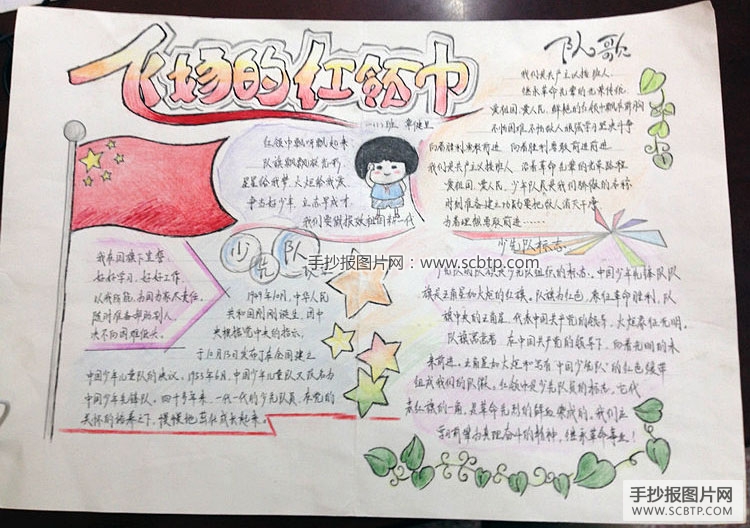 飞扬的红领巾
队歌
我们是共产主义接班人,
继承革命先辈的光荣传统,
爱祖国,爱人民,鲜艳的红领巾飘扬在前胸
不怕困难,不怕敌人,顽强学习,坚决斗争
向着胜利勇敢前进,向着胜利勇敢前进前进
我们是共产主义接班人,沿着革命先辈的光荣路程
爱祖国,爱人民,少年队员是我们骄傲的名称
时刻准备建立功勋,要把敌人消灭干净
为着理想勇敢前进……
红领巾飘呀飘起来
队旗飘飘放光彩
星星给我梦,火炬给我爱
争当好少年,立志早成才
我们要做报效祖国新一代
我在国旗下宣誓
好好学习,好好工作
随时准备帮助别人
决不向困难低头
少先队
1949年10月,中华人民
共和国刚刚诞生,团中
央根据党中央的指示,
于10月13日发布了在全国建立
中国少年儿童队的决议。1953年6月,中国少年儿童队又改名为
中国少年先锋队。四十多年来,一代一代的少先队员,在党的
关怀的培养之下,慢慢地茁壮成长起来。
少先队标志
少先队的队旗是少先队组织的标志。中国少年先锋队队
旗是五角星加火炬的红旗。队旗为红色,象征革命胜利,队
旗中央的五角星,代表中国共产党的领导,火炬象征光明。
队旗寓意着,在中国共产党的领导下,向着光明的未
来前进。五角星加火炬和写着"中国少先队"的红色绶带
组成我们的队徽。红领巾是少先队员的标志,它代
表红旗的一角,是革命先烈的鲜血染成的。我们应
学习前辈为真理奋斗的精神,继承革命事业!
手抄报图片网:www.scbtp.com
手抄报图片网
WWW.SCBTP.COM